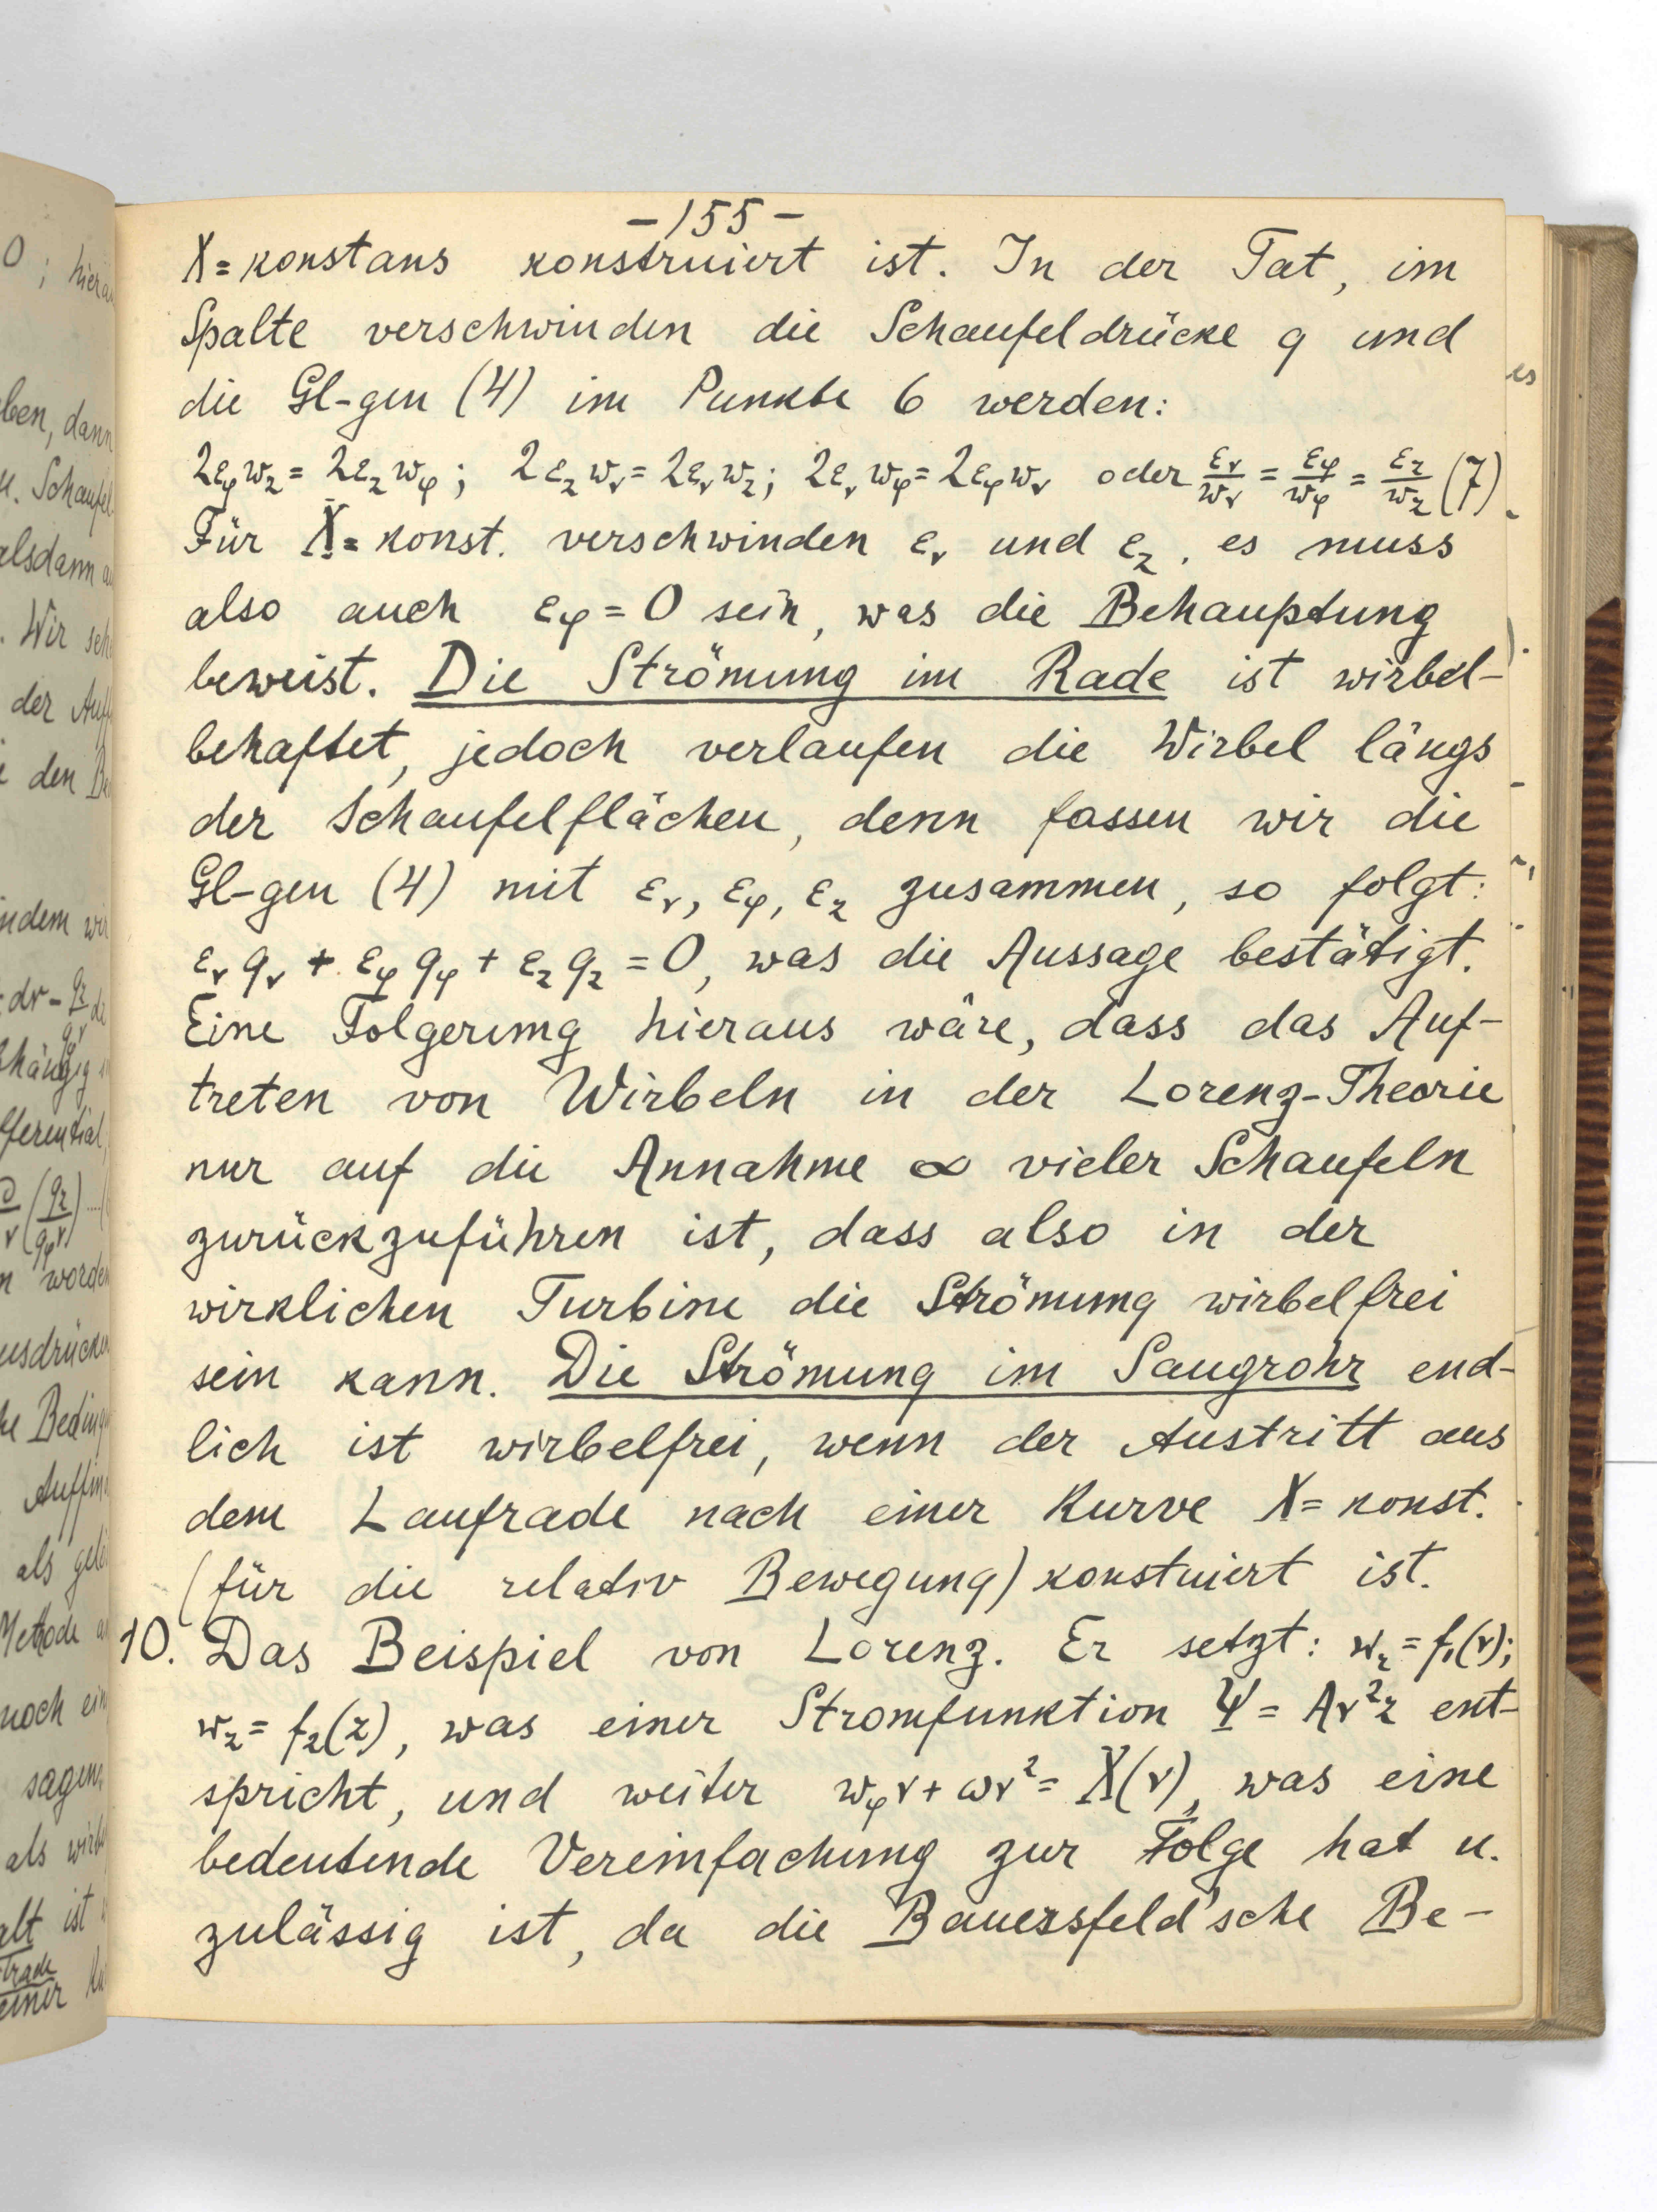 -155-
X = konstans konstruiert ist. In der Tat, im
Spalte verschwinden die Schaufeldrücke q und
die Gl-gen (4) im Punkte 6 werden:
2ε_φ w_z = 2ε_z w_φ ; 2ε_z w_r = 2ε_r w_z ; 2ε_r w_φ = 2ε_φ w_r oder ε_r/w_r = ε_φ/w_φ = ε_z/w_z (7)
Für X = konst. verschwinden ε_r und ε_z, es muss
also auch ε_φ = 0 sein, was die Behauptung
beweist. Die Strömung im Rade ist wirbel-
behaftet, jedoch verlaufen die Wirbel längs
der Schaufelflächen, denn fassen wir die
Gl-gen (4) mit ε_r, ε_φ, ε_z zusammen, so folgt:
ε_r q_r + ε_φ q_φ + ε_z q_z = 0, was die Aussage bestätigt.
Eine Folgerung hieraus wäre, dass das Auf-
treten von Wirbeln in der Lorenz-Theorie
nur auf die Annahme ∞ vieler Schaufeln
zurückzuführen ist, dass also in der
wirklichen Turbine die Strömung wirbelfrei
sein kann. Die Strömung im Saugrohr end-
lich ist wirbelfrei, wenn der Austritt aus
dem Laufrade nach einer Kurve X = konst.
(für die relativ Bewegung) konstuiert ist.
10. Das Beispiel von Lorenz. Er setzt: w_r = f₁(r);
w_z = f₂(z), was einer Stromfunktion Ψ = Ar²z ent-
spricht, und weiter w_φ r + ωr² = X(r), was eine
bedeutende Vereinfachung zur Folge hat u.
zulässig ist, da die Bauersfeld'sche Be-